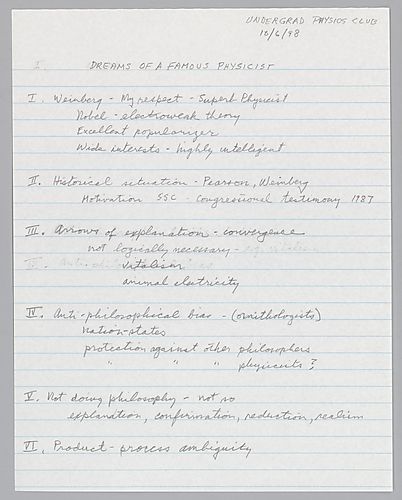 UNDERGRAD PHYSICS CLUB
10/6/98
I
DREAMS OF A FAMOUS PHYSICIST
I. Weinberg - My respect - Superb Physicist
Nobel - electroweak theory
Excellent popularizer
Wide interests - highly intelligent
II. Historical situation - Pearson, Weinberg
Motivation SSC - Congressional testimony 1987
III. Arrows of explanation - convergence
not logically necessary - e.g. vitalism
vitalism
animal electricity
IV. Anti-philosophical bias - (ornithologists)
nation-states
protection against other philosophers
" " " physicists?
V. Not doing philosophy - not so
explanation, confirmation, reduction, realism
VI. Product - process ambiguity